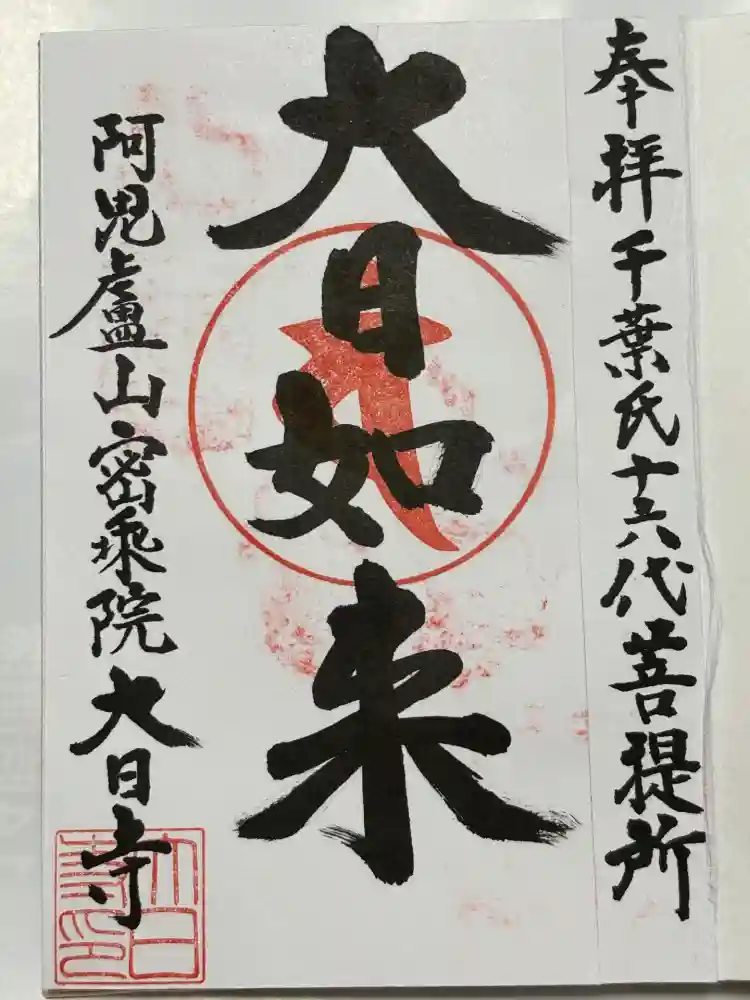 奉拝千葉氏十六代菩提所
大日如来
阿毘盧山密乗院大日寺
大日
寺印